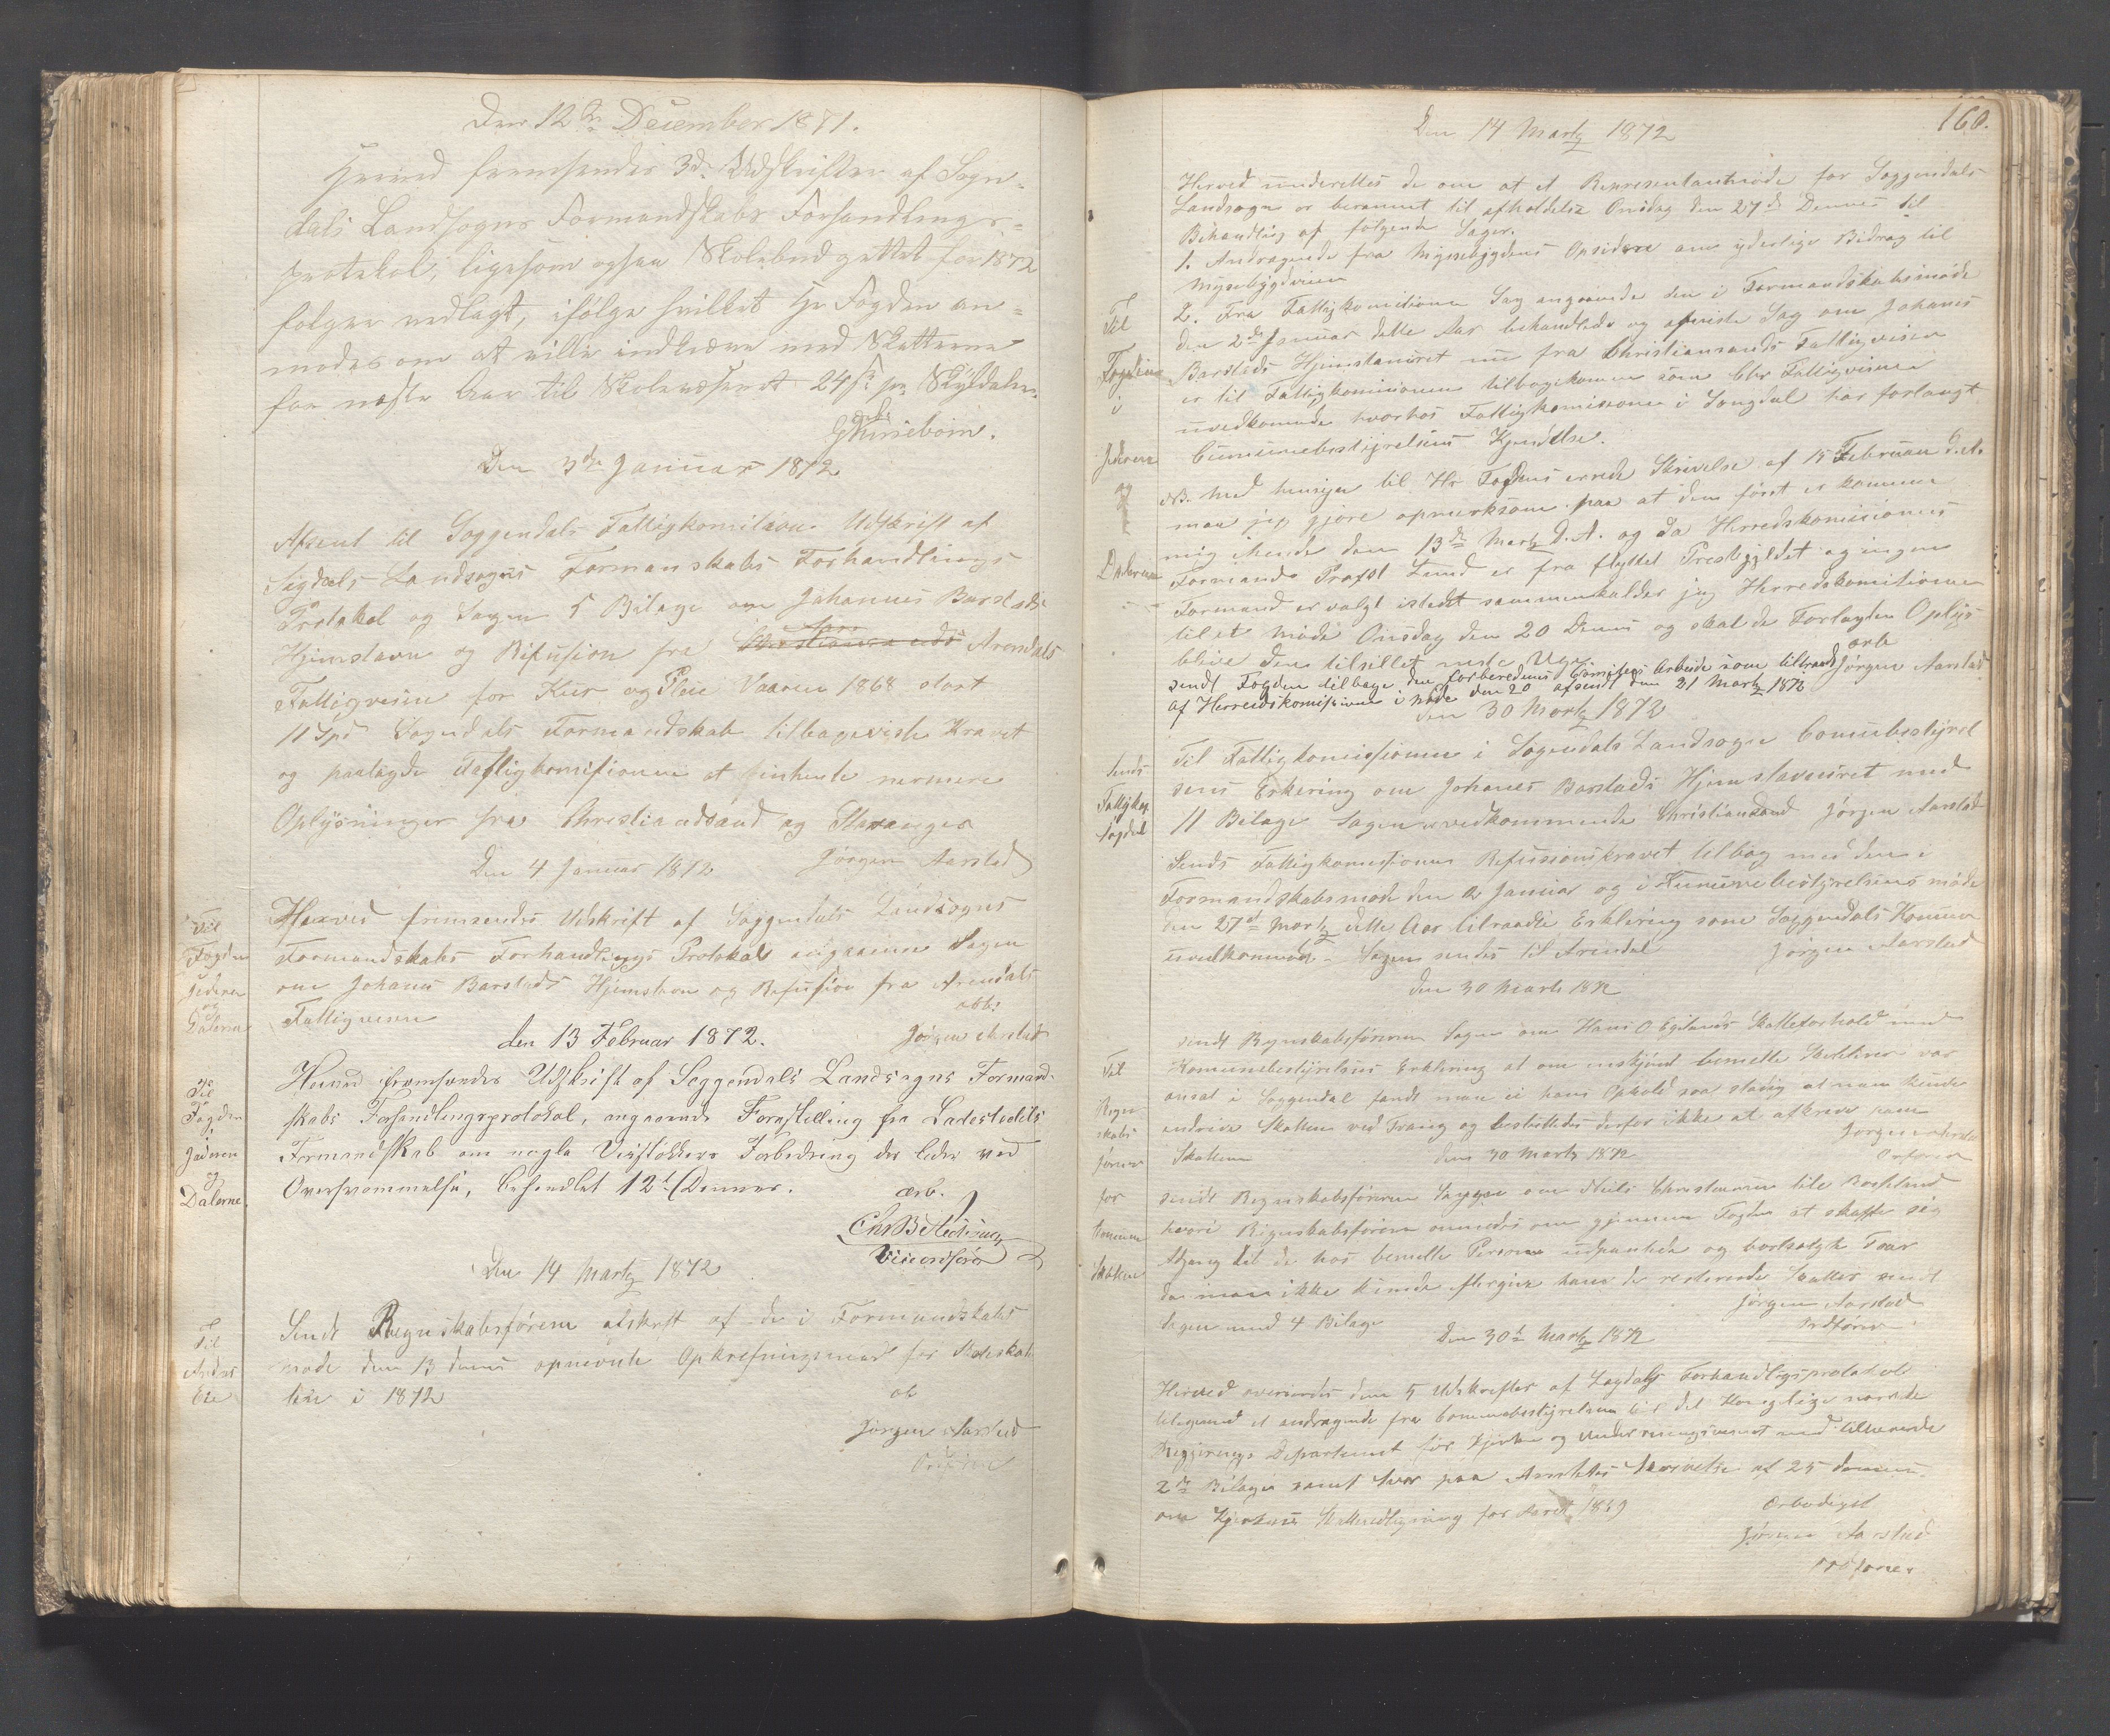 Den 12te December 1871.
Herved fremsendes 3de Udskrifter af Sogn=
dals Landsogns Formandskabs Forhandlings=
protokol, ligesom ogsaa Skolebudgettet for 1872
følger vedlagt, ifølge hvilket Hr Fogden an=
modes om at ville indkræve med Skatterne
for næste Aar til Skolevæsenet 24 s pr Skylddaler.
ærb.
Den 3die Januar 1872
Afsent til Soggendals Fattigkomision Udskrift af
Sogdals Landsogns Formanskabs Forhandlings
Protokol og Sagen 5 Bilage om Johannes Barstads
Hjemstavn og Refusion fra Arendals
Fattigvesen for Kur og Pleie Vaaren 1868 stort
11 Spd Sogndals Formandskab tilbageviste Kravet
og paalagde Fattigkomisionen at inhente nermere
Oplysninger fra Christiandsand og Stavanger
Den 4 Januar 1872 Jørgen Aarstad
Til
Fogden
Jederen
og
Dalerne
Herved fremsendes Udskrift af Soggendals Landsogns
Formandskabs Forhandlings Protokol angaaende Sagen
om Johanes Barstads Hjemstavn og Refusion fra Arendals
Fattigvesen
Den 13 Februar 1872. Jørgen Aarstad
Til
Fogden
i
Jæderen
og
Dalerne.
Herved fremsendes Udskrift af Soggendals Landsogns Formand=
skabs Forhandlingsprotokol, angaaende Forestilling fra Ladestedets
Formandskab om nogle Veistøkkers Forbedring der lider ved
Oversvømmelse, behandlet 12te Dennes.
ærb.
Viceordfører
Den 14 Martz 1872
Til
Sendt Regnskabsføreren afskrift af de i Formandskabs
møde den 13 dennes opnevnte Opkrefningsmend for Skoleskat
ten i 1872
Jørgen Aarstad
Ordfører
160.
Den 14 Martz 1872
Herved underettes de om at et Representantmøde for Soggendals
Landsogn er berammet til afholdelse Onsdag den 27de Dennes til
Behandling af følgende Sager.
1. Andragende fra Opsidere om yderlige Bidrag til
Til
Fogden
i
Jederen
og
Dalerne
2. Fra Fattigkomitionen Sag angaaende den i Formandskabsmøde
den 2de Januar dette Aar behandlede og afviste Sag om Johanes
Barstads Hjemstavnsret nu fra Christiansands Fattigvesen
er til Fattigkomisionen tilbagekommen som Fattigvesenet
uvedkomende hvorhos Fattigkomissionen i Songdal har forlangt
Comunebestyrelsens Kjendelse.
NB. Med hensyn til Hr Fogdens ærede Skrivelse af 15 Februar d.A.
maa jeg gjøre opmerksom paa at den først er kommen
mig ihende den 13de Martz d.A. og da Herredskomisionens
Formand Profst Lund er fra flyttet Presbgjeldet og ingen
Formand er valgt istedet sammenkalder jeg Herredskomitionen
til et møde Onsdag den 20 Dennes og skal de Forlangten Oplys
blive dem tilstillet neste Uge ærb
Jørgen Aarstad
sendt Fogden tilbage den forberedende Comitees Arbeide som tiltraadt
af Herredskomissionen i møde den 20 afsendt den 21 Martz 1872
Den 30 Martz 1872
Sendt
Fattigkom
Sogdal
Til Fattigkomissionen i Sogendals Landsogn Comunebestyrel
sens Erkering om Johanes Barstads Hjemstavnsret med
11 Bilage Sagen uvedkommende Christiansand Jørgen Aarstad
Sendt Fattigkomisionen Refusionskravet tilbag med den i
Formandskabsmøde den 2 Januar og i Kumunebestyrelsens møde
den 27de Martz dette Aar tilraadte Erklering som Soggendals Komune
uvedkommende. Sagen sendes til Arendal Jørgen Aarstad
Den 30 Marts 1872
Til
Regn
skabs
føreren
for
Komune
Skatten
sendt Regnskabsføreren Sagen om Hans O Egelands Skatteforhold med
Komunebestyrelsens Erklering at om enskjønt bemelte Skolelærer var
ansat i Soggendal fandt man ei hans Ophold saa stadig at man kunde
inddrive Skatten ved Tvang og besluttedes derfor ikke at afkreve ham
Skatten Jørgen Aarstad
Ordfører
Den 30 Marts 1872
sendt Regnskabsføreren Sagen om Niels Christensen
hvori Regnskabsføreren anmodes om gjennem Fogden at skaffe sig
Adgang til de hos bemelte Person udpantede og bortsolgte
da man ikke kunde eftergive ham de resterende Skatter sendt
sagen med 4 Bilage Jørgen Aarstad
Ordfører
Den 30te Martz 1872
Herved oversendes dem 5 Udskrifter af Sogdals Forhandligsprotokol
et andragende fra Comunebestyrelsen til det Kongelige norske
Regjerings Departement for Kirke og Undervisningsvesenet med tilhørende
2de Bilage samt Svar paa Amtets Skrivelse af 25 dennes
om Skatteudligning for Aaret 1869
Ærbødigst
Jørgen Aarstad
Ordfører